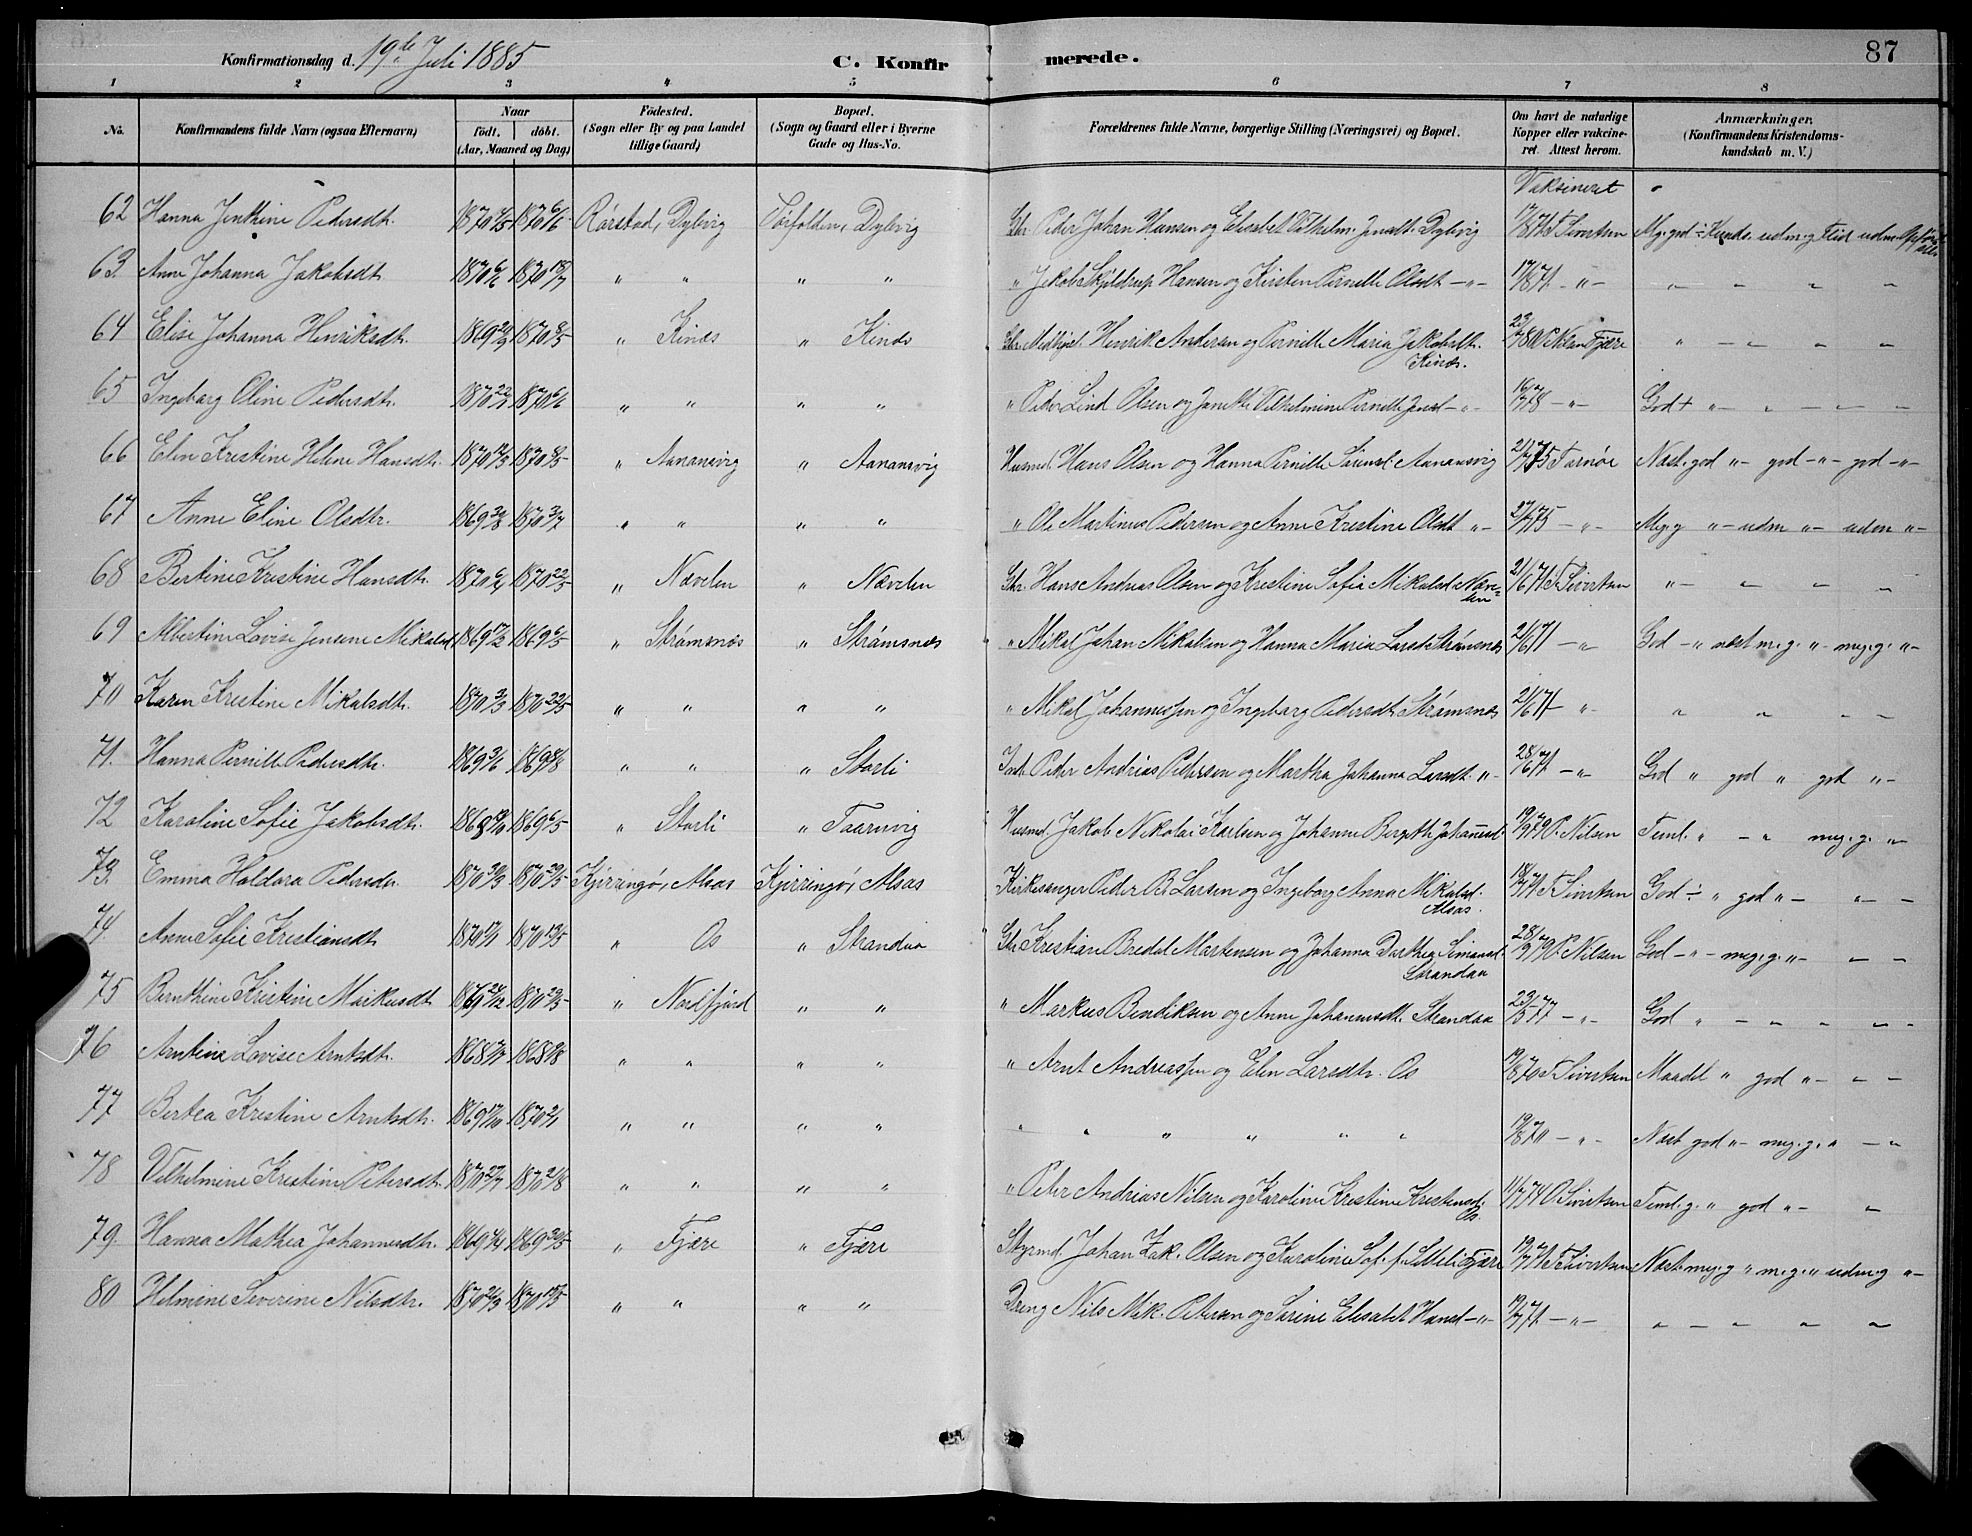 87
Konfirmationsdag d. 19de Juli 1885 C. Konfirmerede.
1 2 3 4 5 6 7 8
No. Konfirmandens fulde Navn (ogsaa Efternavn) Naar født. døbt. (Aar, Maaned og Dag) Fødested. (Sogn eller By og paa Landet tillige Gaard) Bopæl. (Sogn og Gaard eller i Byerne Gade og Hus-No. Forældrenes fulde Navne, borgerlige Stilling (Næringsvei) og Bopæl. Om havt de naturlige Kopper eller vakcineret. Attest herom. Anmærkninger. (Konfirmandens Kristendomskundskab m. V.)
Vaksineret
62 Hanna Jenthine Pedersdtr. 1870 1870 6/6 Rørstad, Dybvig Nordfolden, Dybvig Gbr. Peder Johan Hansen og Elisabet Vilhelm. Jensdt. Dybvig 17/8 71 F. Sivertsen Mg. god ÷ Kunds. udm.g Flid udm. Opførsel
63. Anne Johanna Jakobsdt. 1870 1870 " " " " " Jakob Skjeldrup Hansen og Kirsten Pernille Olsdt. -"- 17/8 71 -"- " " " "
64 Elise Johanna Henriksdt. 1869 1870 8/5 " Kines " Kines Gbr. Medhjel. Henrik Andersen og Pernille Maria Jakobsdt. Kines. 23/7 80 P. Nilsen Fjære " " " "
65 Ingeborg Oline Pedersdt. 1870 1870 6/6 " " " " " Peder Lind Olsen og Janetti Vilhelmine Pernille Jensd -"- 16/7 78 -"- God + " " " "
66 Elen Kristine Helene Hansdtr. 1870 12/3 1870 8/5 " Aanansvig " Aanansvig Husmd. Hans Olsen og Hanna Pernille Sørensd. Aanansvig 21/7 75 Farnøe Næst. god " - god -"- god -"-
67 Anne Eline Olsdtr. 1869 1870 3/7 " " " " " Ole Martinus Pedersen og Anne Kristine Olsdt " - 27/7 75 -"- Meg. g " - udm " - udm " -
68 Bertine Kristine Hansdtr. 1870 1870 22/5 " Nævelen " Nævelen Gbr. Hans Andreas Olsen og Kristine Sofia Mikalsd. Nævelen 21/6 71 F. Sivertsen " " " "
69 Albertine Lovise Jensine Mikalsd 1869 1869 6/5 " Strømsnes " Strømsnes " Mikal Johan Mikalsen og Hanna Maria Larsd Strømsnes 21/6 71 -"- God -" næst m. g. " - meg. g. " -
70 Karen Kristine Mikalsdtr. 1870 3/3 1870 22/5 " " " " " Mikal Johannessen og Ingeborg Pedersdt. Strømsnes 21/6 71 " " " " "
71. Hanna Pernille Pedersdtr. 1869 1869 " " " Storli Ind. Peder Andrias Pedersen og Martha Johanna Larsdt. " - 28/6 71 -"- God " god " god " -
72 Karoline Sofie Jakobsdtr. 1868 1869 6/5 " Storli " Taarnvig Husmd. Jakob Nikolai Karlsen og Johanna Bergitte Johannesd. 19/9 79 P. Nilsen Teml. " - " meg. g. " -
73. Emma Haldora Pedersdtr. 1870 1870 29/5 Kjerringø, Alsas Kjerringø, Alsas Kirkesanger Peder B. Larsen og Ingeborg Anna Mikalsd. Alsas. 18/7 71 F. Sivertsen God ÷ " god " - " -
74. Anne Sofie Kristiansdt 1870 1870 " Os " Strandaa Gbr Kristian Bredal Martensen og Johanna Dorthea Simonsd. Strandaa 28/9 79 P. Nilsen God -"- meg. g. " - " -
75 Bernthine Kristine Markusdt 1869 27/12 1870 29/5 " Nordfjord " " " Markus Bendiksen og Anne Johannesdt. Strandaa 23/5 77 -"- God " - " " " -
76 Arntina Lovise Arntsdtr. 1868 1868 " " " " " Arnt Andreassen og Elen Larsdtr. Os 19/8 70 F. Sivertsen Maadel " god " - " -
77 Bertea Kristine Arntsdtr. 1869 17/10 1870 2/1 " " " " " " " " " " 19/8 70 -"- Næst god " - meg. g. " - "
78 Vilhelmine Kristine Petersdt. 1870 27/7 1870 21/8 " " " " " Peter Andrias Nilsen og Karoline Kristine Kristensd. Os. 11/7 74 O. Sivertsen Teml. g. " god " - "
79. Hanna Mathea Johannesdtr. 1869 1869 " Fjære " Fjære Styrmd. Johan Zak. Olsen og Karoline Sof. f. Sitteli Fjære 19/7 71 F. Sivertsen Næst. meg. g " m. g. " udm. g " -
80 Helmine Severine Nilsdtr. 1870 21/3 1870 15/5 " " " " Dreng Nils Mik. Petersen og Sørine Elisabet Hansd -"- 19/7 71 -"- " " " "